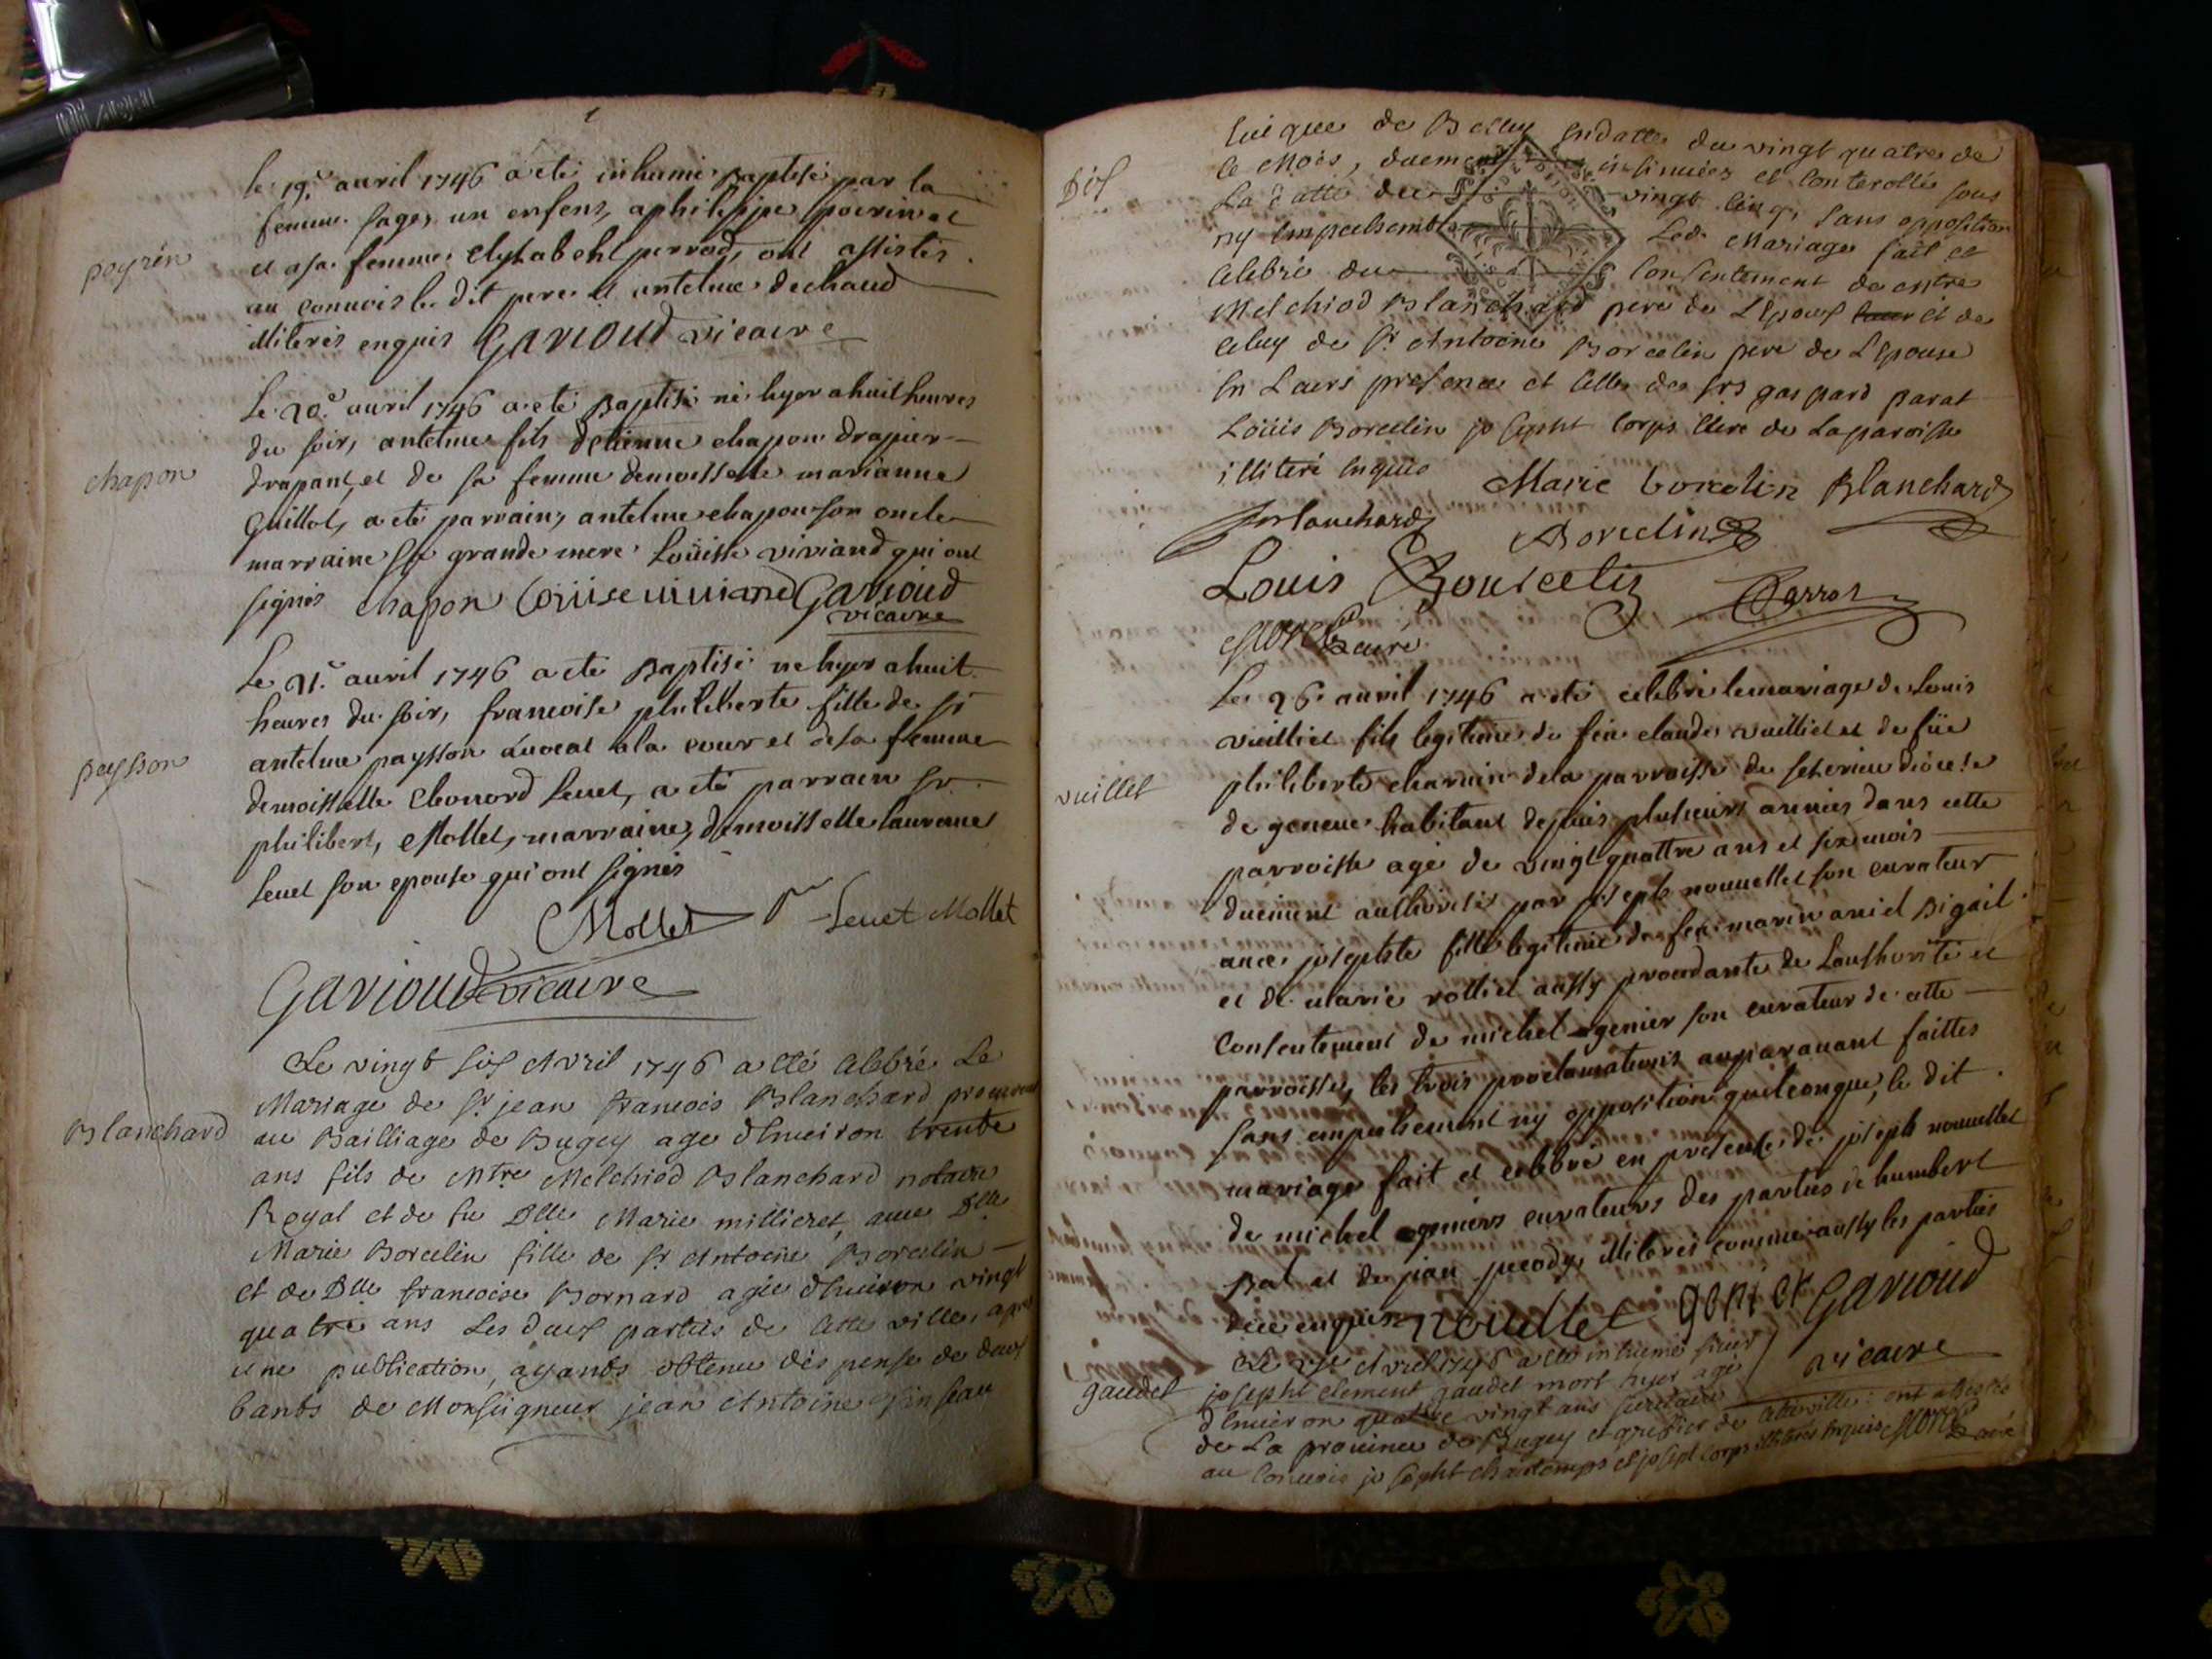 le 19e avril 1746 a eté inhumé baptisé par la
femme sage, un enfens, a philippe poerin et
et a sa femme elysabeht perrad, ont assistés
au convois le dit pere et antelme dechaud
illiterés enquis Garioud vicaire
peyrin
Le 20e avril 1746 a eté baptisé né hyer a huit heures
du soir, antelme fils detienne chapon drapier
drapant, et de sa femme demoisselle marianne
Guillot, a eté parrain, antelme chapon son oncle
marraine sa grande mere Loüisse viviand qui ont
signés chapon Loüise uiuiand Garioud
vicaire
chapon
Le 21e avril 1746 a eté Baptisé né hyer a huit
heures du soir, francoise philiberte fille de sr
antelme paysson avocat a la cour et de sa femme
demoisselle Leonord Seuet, a eté parrain sr
philibert, Mollet, marraine, demoisselle laurence
Seuet son epouse qui ont signés
paysson
Mollet Seuet Mollet
Garioud vicaire
Le vingt six Avril 1746 a eté Celebré Le
Mariage de Sr jean francois Blanchard procureur
au Bailliage de Bugey age d'Enuiron trente
ans fils de Mtre Melchiod Blanchard notaire
Royal et de fu Dlle Marie millieret, auec Dlle
Marie Borcelin fille de Sr Antoine Borcelin
et de Dlle francoise Bornard agée d'Enuiron vingt
quatre ans Les deux parties de Cette ville, apres
une publication, ayants obtenu dispense de deux
bants de Monseigneur jean Antoine Tinseau
Blanchard
Euêque de Belley En datte du vingt quatre de
ce Mois, duement insinuées et Conterollée sous
La datte du vingt cinq, sans opposition
ny Empechement Led. Mariage fait et
Celebré du Consentement de mtre
Melchiod Blanchard pere de L'Epoux et de
Celuy de Sr Antoine Borcelin pere de L'Epouse
En Leurs presence et Celle des srs gaspard parat
Loüis Borcelin josepht Corps Clerc de La paroisse
illiteré Enquis Marie borcelin Blanchard
Blanchard Borcelin
Louis Bourcelin
curé
Le 26e avril 1746 a eté celebré le mariage de Louis
vuilliet fils legitime de feu claude vuilliet et de füe
philiberte charvin de la parroisse de diocese
de geneue habitant depuis plusieurs années dans cette
parroisse agé de vingt quattre ans et six mois
duement authorisé par joseph nouuellet son curateur
auec josephte fille legitime de feu marin aniel Bigail
et de marie rollet aussy procedante de L'authorité et
Consentement de michel genier son curateur de cette
parroisse, les trois proclamations auparauant faittes
sans empechement ny opposition quelconque, le dit
mariage fait et celebré en presence de joseph nouuellet
de michel geniers curateurs des parties de humbert
Bal et de jean illiterés comme aussy les parties
de ce enquis nouellet genier Garioud
vicaire
vuillet
Le Avril 1746 a eté inhumé sieur
josepht clement gaudet mort hyer agé
d'Enuiron quatre vingt ans
de La prouince de Bugey et greffier de Cette ville: ont assistés
au Conuois josepht chantemps et josept Corps illiteres Enquis curé
gaudet